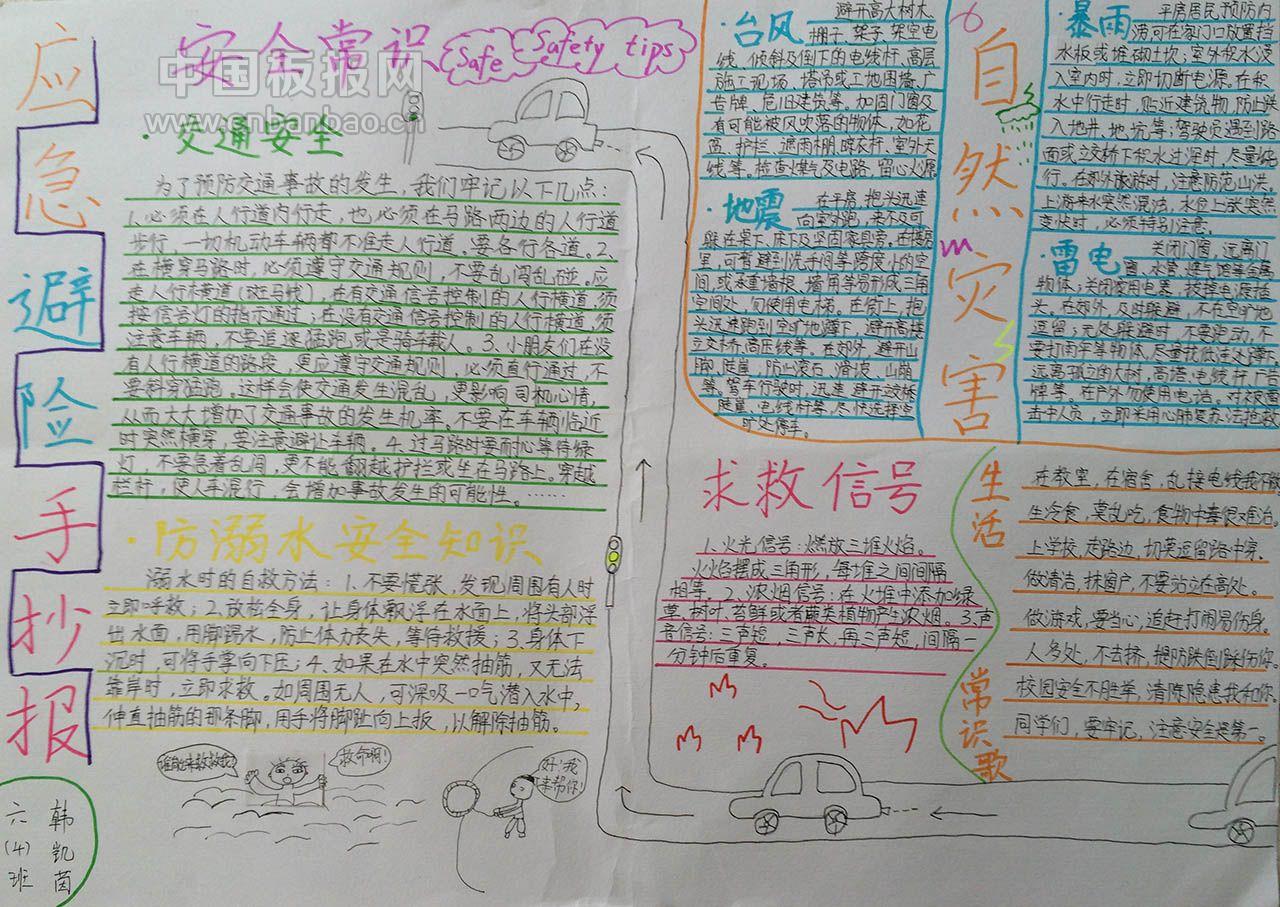 应急避险手抄报
安全常识
Safe Safety tips
中国板报网
www.cnbanbao.cn
·交通安全
为了预防交通事故的发生，我们牢记以下几点：
1.必须在人行道内行走，也必须在马路两边的人行道
步行，一切机动车辆都不准走人行道。要各行各道。2、
在横穿马路时，必须遵守交通规则，不要乱闯乱碰。应
走人行横道(斑马线)，在有交通信号控制的人行横道，须
按信号灯的指示通过；在没有交通信号控制的人行横道，须
注意车辆，不要追逐猛跑，或是骑车载人。3.小朋友们在没
有人行横道的路段，更应遵守交通规则，必须直行通过，不
要斜穿猛跑。这样会使交通发生混乱，更影响司机心情，
从而大大增加了交通事故的发生机率。不要在车辆临近
时突然横穿，要注意避让车辆。4.过马路时要耐心等待绿
灯，不要急着乱闯，更不能翻越护拦或坐在马路上。穿越
栏杆，使人车混行，会增加事故发生的可能性。……
·防溺水安全知识
溺水时的自救方法：1.不要慌张，发现周围有人时
立即呼救；2.放松全身，让身体飘浮在水面上，将头部浮
出水面，用脚踢水，防止体力丧失，等待救援；3.身体下
沉时，可将手掌向下压；4.如果在水中突然抽筋，又无法
靠岸时，立即求救。如周围无人，可深吸一口气潜入水中，
伸直抽筋的那条脚，用手将脚趾向上扳，以解除抽筋。
谁能来救救我？
救命啊！
好！我
来帮你！
六(4)班
韩凯茵
自然灾害
·台风
避开高大树木、
棚子、架子、架空电
线、倾斜及倒下的电线杆、高层
施工现场、塔吊或工地围墙、广
告牌、危旧建筑等。加固门窗及
有可能被风吹落的物体，如花
盆、护拦、遮雨棚、晾衣杆、室外天
线等。检查煤气及电路，留心火源
·地震
在平房，抱头迅速
向室外跑，来不及可
躲在桌下、床下及坚固家具旁。在楼房
里，可暂避到洗手间等跨度小的空
间，或承重墙根、墙角等易形成三角
空间处，勿使用电梯。在街上，抱
头迅速跑到空旷地蹲下，避开高楼、
立交桥、高压线等。在郊外，避开山
脚、陡崖，防止滚石、滑坡、山崩
等。驾车行驶时，迅速避开立交桥、
陡崖、电线杆等，尽快选择空
旷处停车。
·暴雨
平房居民预防内
涝可在家门口放置挡
水板或堆砌土坎；室外积水浸
入室内时，立即切断电源。在积
水中行走时，贴近建筑物，防止跌
入地井、地坑等；驾驶员遇到路
面或立交桥下积水过深时，尽量绕
行。在郊外旅游时，注意防范山洪。
上游来水突然混浊、水位上涨突然
变快时，必须特别注意。
·雷电
关闭门窗，远离门
窗、水管、煤气管等金属
物体；关闭家用电器，拔掉电源插
头。在郊外，及时躲避，不在空旷地
逗留；无处躲避时，不要跑动，不
要打雨伞等物体，尽量找低洼处蹲下
远离孤立的大树、高塔、电线杆、广告
牌等。在户外勿使用电话。对被雷
击中人员，立即采用心肺复苏法抢救
求救信号
1.火光信号：燃放三堆火焰。
火焰摆成三角形，每堆之间间隔
相等。2.浓烟信号：在火堆中添加绿
草、树叶、苔鲜或者蕨类植物产生浓烟。3.声
音信号：三声短，三声长，再三声短，间隔一
分钟后重复。
生活常识歌
在教室，在宿舍，乱接电线我不敢
生冷食，莫乱吃，食物中毒很难治。
上学校，走路边，切莫逗留路中穿。
做清洁，抹窗户，不要站立在高处。
做游戏，要当心，追赶打闹易伤身。
人多处，不去挤，提防跌倒踩伤你。
校园安全不胜举，清除隐患我和你。
同学们，要牢记，注意安全是第一。